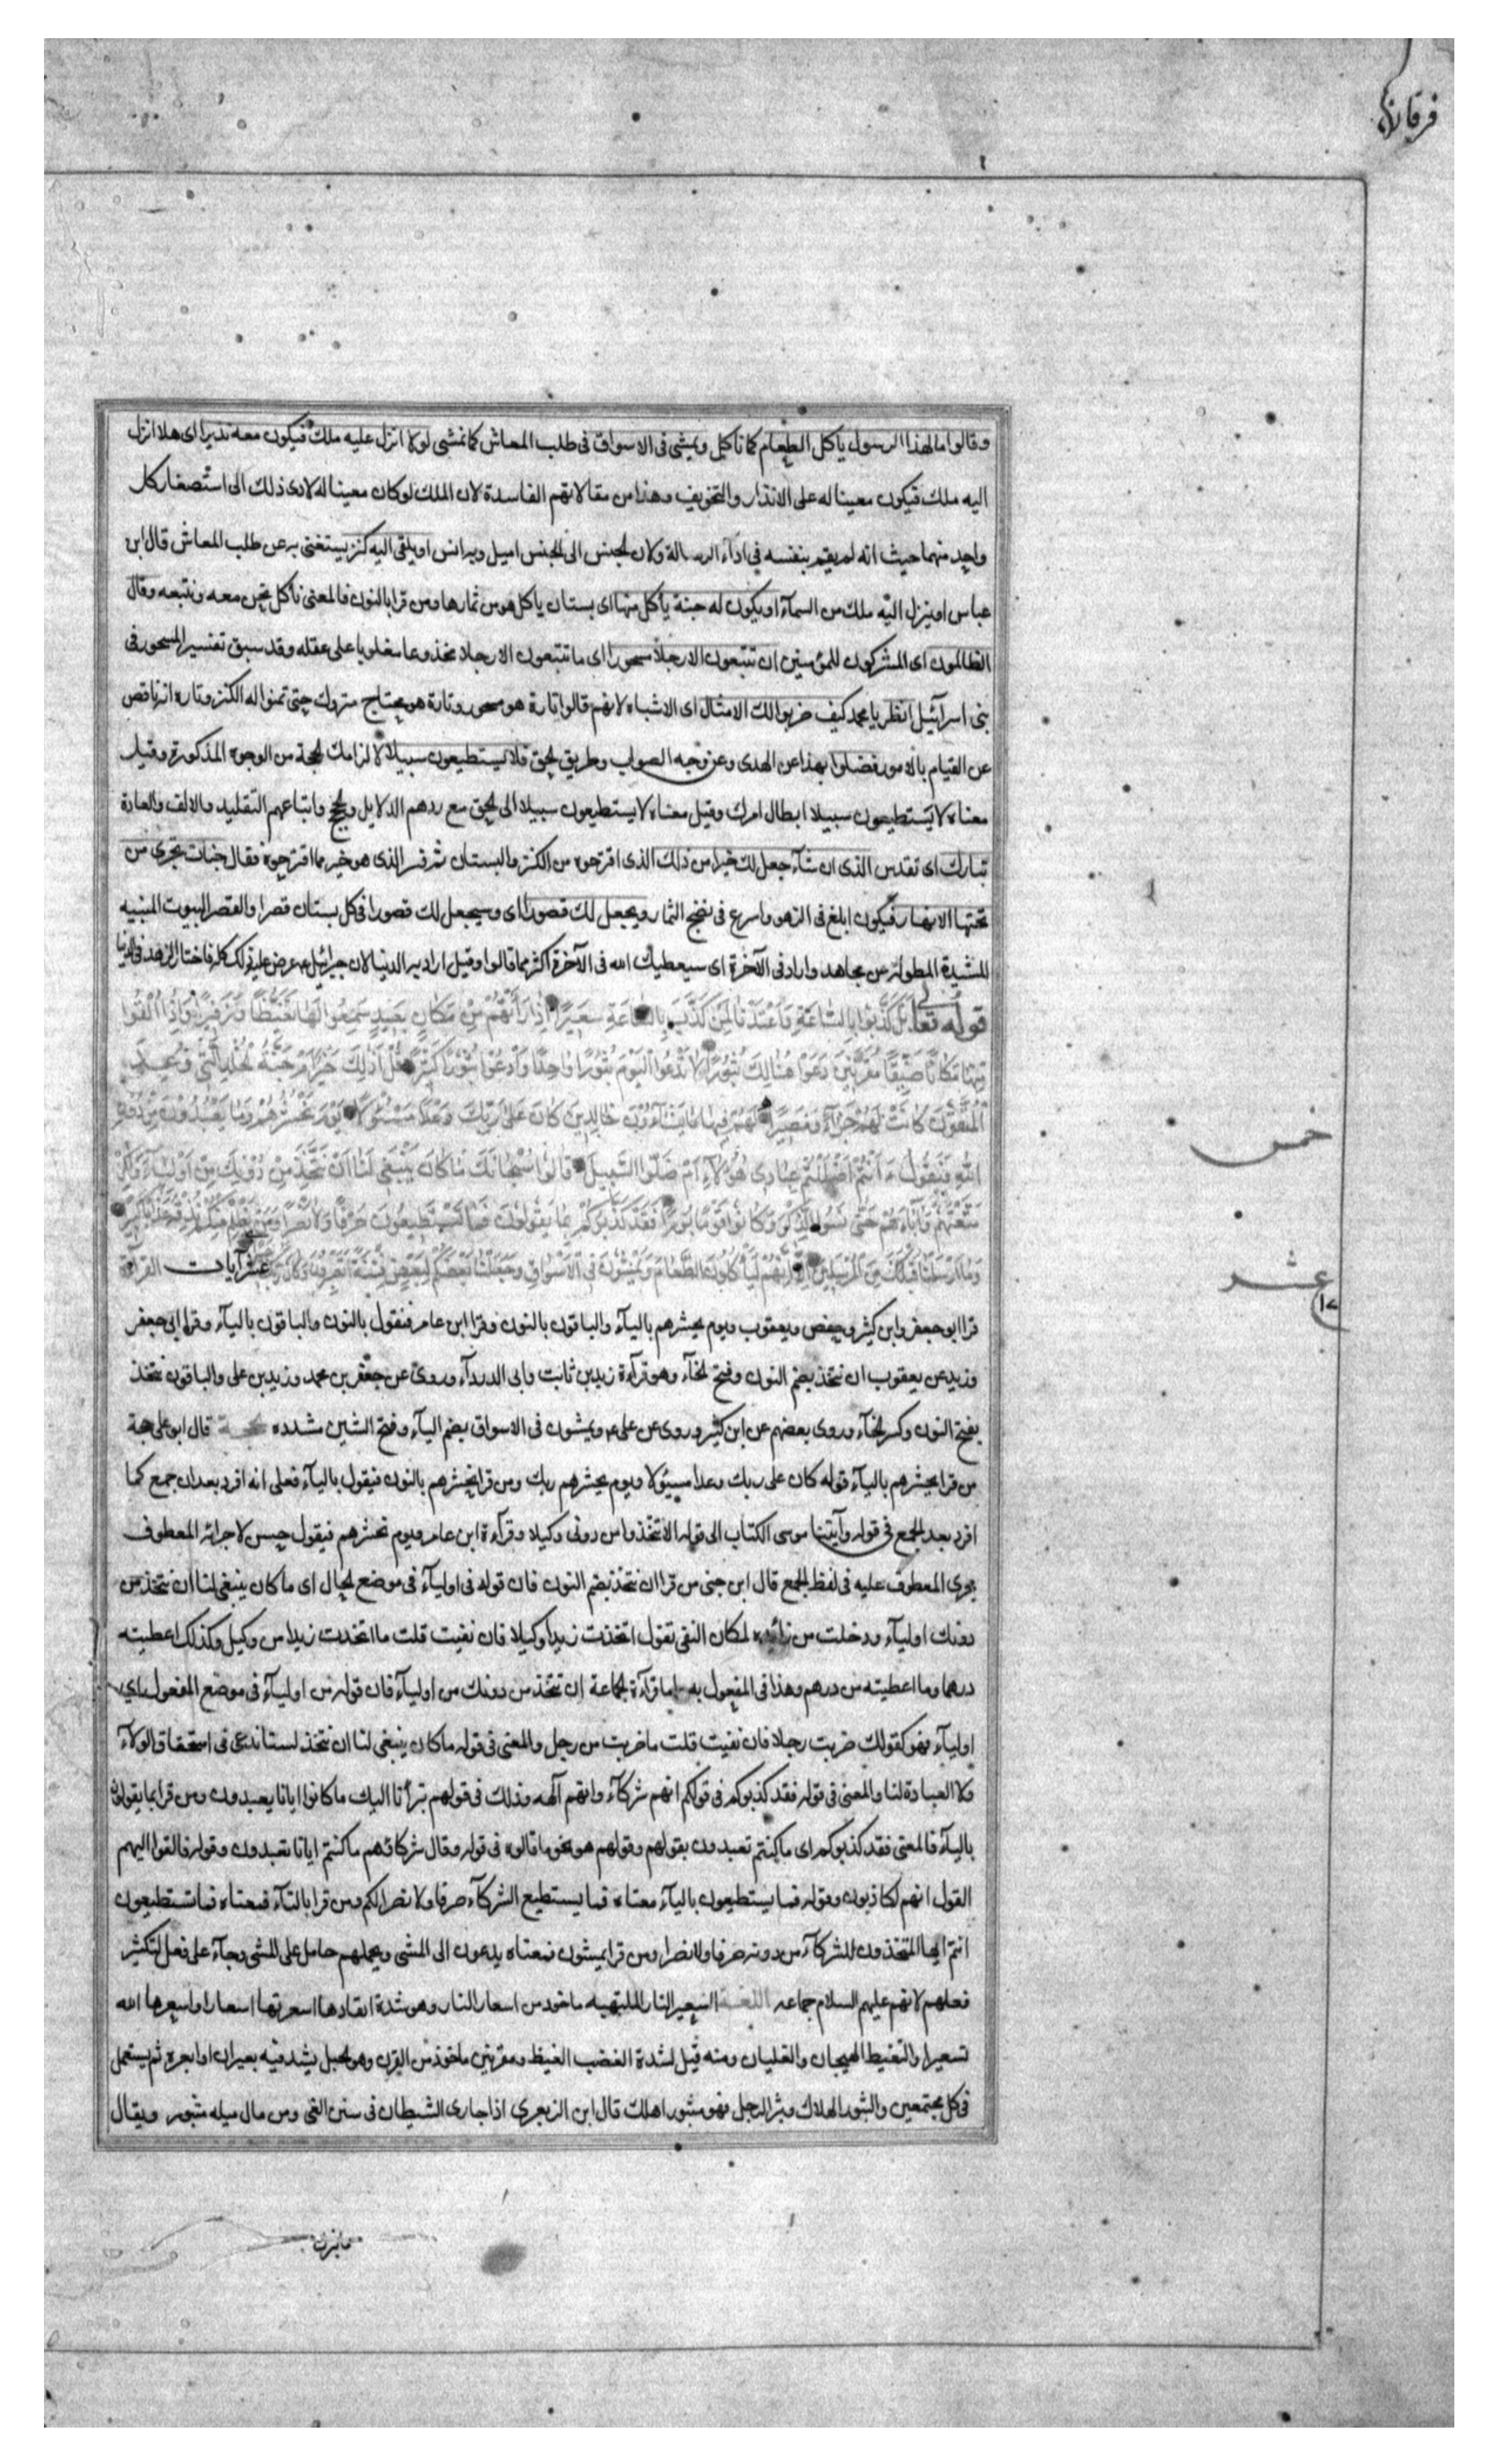 فرقان
وقالوا مال هذا الرسول ياكل الطعام كما ناكل ويمشى فى الاسواق فى طلب المعاش كما نمشى لولا انزل عليه ملك فيكون معه نذيرا اى هلا انزل
اليه ملك فيكون معينا له على الانذار والتخويف وهذا من مقالاتهم الفاسدة لان الملك لوكان معينا له لادى ذلك الى استصغار كل
واحد منهما حيث انه لم يقم بنفسه فى اداء الرسالة ولان الجنس الى الجنس اميل وبه انس او يلقى اليه كنز يستغنى به عن طلب المعاش قال ابن
عباس او ينزل اليه ملك من السمآء او يكون له جنة يأكل منها اى بستان ياكل هو من ثمارها ومن قرا بالنون فالمعنى نأكل نحن معه ونتبعه وقال
الظالمون اى المشركون للمؤمنين ان تتبعون الا رجلا مسحورا اى ما تتبعون الا رجلا مخذوعا مغلوبا على عقله وقد سبق تفسير المسحور فى
بنى اسرآئيل انظر يا محمد كيف ضربوا لك الامثال اى الاشباه لانهم قالوا تارة هو مسحور وتارة هو محتاج متروك حتى تمنوا له الكنز وتارة انه ناقص
عن القيام بالامور فضلوا بهذا عن الهدى وعن وجه الصواب وطريق الحق فلا يستطيعون سبيلا لالزامك الحجة من الوجوه المذكورة وقيل
معناه لا يستطيعون سبيلا ابطال امرك وقيل معناه لا يستطيعون سبيلا الى الحق مع ردهم الدلايل والحجج واتباعهم التقليد والالف والعادة
تبارك اى تقدس الذى ان شآء جعل لك خيرا من ذلك الذى اقترحوه من الكنز والبستان ثم فسر الذى هو خير مما اقترحوه فقال جنات تجرى من
تحتها الانهار فيكون ابلغ فى الزهو واسرع فى نضج الثمار ويجعل لك قصورا اى وسيجعل لك قصورا فى كل بستان قصرا والقصر البيوت المبنيه
المشيدة المطولة عن مجاهد واراد فى الآخرة اى سيعطيك الله فى الآخرة اكثر مما قالوا وقيل اراد به الدنيا لان جبرائيل ع عرض عليه ذلك كله فاختار الزهد فى الدنيا
قوله تعالى بَلْ كَذَّبُوا بِالسَّاعَةِ وَأَعْتَدْنَا لِمَنْ كَذَّبَ بِالسَّاعَةِ سَعِيرًا اِذَا رَأَتْهُمْ مِنْ مَكَانٍ بَعِيدٍ سَمِعُوا لَهَا تَغَيُّظًا وَزَفِيرًا وَاِذَا اُلْقُوا
مِنْهَا مَكَانًا ضَيِّقًا مُقَرَّنِينَ دَعَوْا هُنَالِكَ ثُبُورًا لَا تَدْعُوا الْيَوْمَ ثُبُورًا وَاحِدًا وَادْعُوا ثُبُورًا كَثِيرًا قُلْ اَذٰلِكَ خَيْرٌ اَمْ جَنَّةُ الْخُلْدِ الَّتِى وُعِدَ
الْمُتَّقُونَ كَانَتْ لَهُمْ جَزَآءً وَمَصِيرًا لَهُمْ فِيهَا مَا يَشَآءُونَ خَالِدِينَ كَانَ عَلَى رَبِّكَ وَعْدًا مَسْئُولًا وَيَوْمَ نَحْشُرُهُمْ وَمَا يَعْبُدُونَ مِنْ دُونِ
اللهِ فَنَقُولُ ءَاَنْتُمْ اَضْلَلْتُمْ عِبَادِى هٰؤُلَآءِ اَمْ ضَلُّوا السَّبِيلَ قَالُوا سُبْحَانَكَ مَا كَانَ يَنْبَغِى لَنَا اَنْ نَتَّخِذَ مِنْ دُونِكَ مِنْ اَوْلِيَآءَ وَلٰكِنْ
مَتَّعْتَهُمْ وَآبَاءَهُمْ حَتَّى نَسُوا الذِّكْرَ وَكَانُوا قَوْمًا بُورًا فَقَدْ كَذَّبُوكُمْ بِمَا يَقُولُونَ فَمَا تَسْتَطِيعُونَ صَرْفًا وَلَا نَصْرًا وَمَنْ يَظْلِمْ مِنْكُمْ نُذِقْهُ عَذَابًا كَبِيرًا
وَمَا اَرْسَلْنَا قَبْلَكَ مِنَ الْمُرْسَلِينَ اِلَّا اِنَّهُمْ لَيَأْكُلُونَ الطَّعَامَ وَيَمْشُونَ فِى الْاَسْوَاقِ وَجَعَلْنَا بَعْضَكُمْ لِبَعْضٍ فِتْنَةً اَتَصْبِرُونَ وَكَانَ عشر آيات القرآءة
قرا ابو جعفر وابن كثير وحفص ويعقوب ويوم يحشرهم باليآء والباقون بالنون وقرا ابن عامر فنقول بالنون والباقون باليآء وقرا ابى جعفر
وزيد عن يعقوب ان نتخذ بضم النون وفتح الخآء وهو قرآءة زيد بن ثابت وابى الدردآء وروى عن جعفر بن محمد وزيد بن على والباقون نتخذ
بفتح النون وكسر الخآء وروى بعضهم عن ابن كثير وروى عن على ع ويمشون فى الاسواق بضم اليآء وفتح الشين مشدده الحجة قال ابو على حجة
من قرا يحشرهم باليآء قوله كان على ربك وعدا مسئولا ويوم يحشرهم ربك ومن قرا نحشرهم بالنون فيقول باليآء فعلى انه افرد بعد ان جمع كما
افرد بعد الجمع فى قوله وآتينا موسى الكتاب الى قوله الا تتخذوا من دونى وكيلا وقرآءة ابن عامر ويوم نحشرهم فنقول حسن لاجرائه المعطوف
مجرى المعطوف عليه فى لفظ الجمع قال ابن جنى من قرا ان نتخذ بضم النون فان قوله فى اوليآء فى موضع الحال اى ما كان ينبغى لنا ان نتخذ من
دونك اوليآء ودخلت من زائدة لمكان النفى تقول اتخذت زيدا وكيلا فان نفيت قلت ما اتخذت زيدا من وكيل وكذلك اعطيته
درهما وما اعطيته من درهم وهذا فى المفعول به واما قرآءة الجماعة ان نتخذ من دونك من اوليآء فان قوله من اوليآء فى موضع المفعول به اى
اوليآء فهو كقولك ضربت رجلا فان نفيت قلت ما ضربت من رجل والمعنى فى قوله ما كان ينبغى لنا ان نتخذ لسنا ندعى فى استحقاق الولآء
ولا العبادة لنا والمعنى فى قوله فقد كذبوكم فى قولكم انهم شركآء وانهم آلهه وذلك فى قولهم تبرأنا اليك ما كانوا ايانا يعبدون ومن قرا بما يقولون
باليآء فالمعنى فقد كذبوكم اى ما كنتم تعبدون بقولهم وقولهم هو نحو ما قالوه فى قوله وقال شركاؤهم ما كنتم ايانا تعبدون وقوله فالقوا اليهم
القول انهم لكاذبون وقوله فما يستطيعون باليآء معناه فما يستطيع الشركآء صرفا ولا نصرا لكم ومن قرا بالتآء فمعناه فما تستطيعون
انتم ايها المتخذون للشركآء من دونه صرفا ولا نصرا ومن قرا يمشون فمعناه يدعون الى المشى ويحملهم حامل على المشى وجآء على فعل لتكثير
فعلهم لانهم عليهم السلام جماعه اللغة السعير النار الملتهبه ماخوذ من اسعار النار وهو شدة ايقادها اسعرتها اسعارا واسعرها الله
تسعيرا والتغيظ الهيجان والغليان ومنه قيل لشدة الغضب الغيظ ومقرنين ماخوذ من القرن وهو الحبل يشد فيه بعيران او ابعره ثم يستعمل
فى كل مجتمعين والثبور الهلاك وثبر الرجل فهو مثبور اهلك قال ابن الزبعرى اذ اجارى الشيطان فى سنن الغى ومن مال ميله مثبور ويقال
خمس
عشر
ما ثبرك